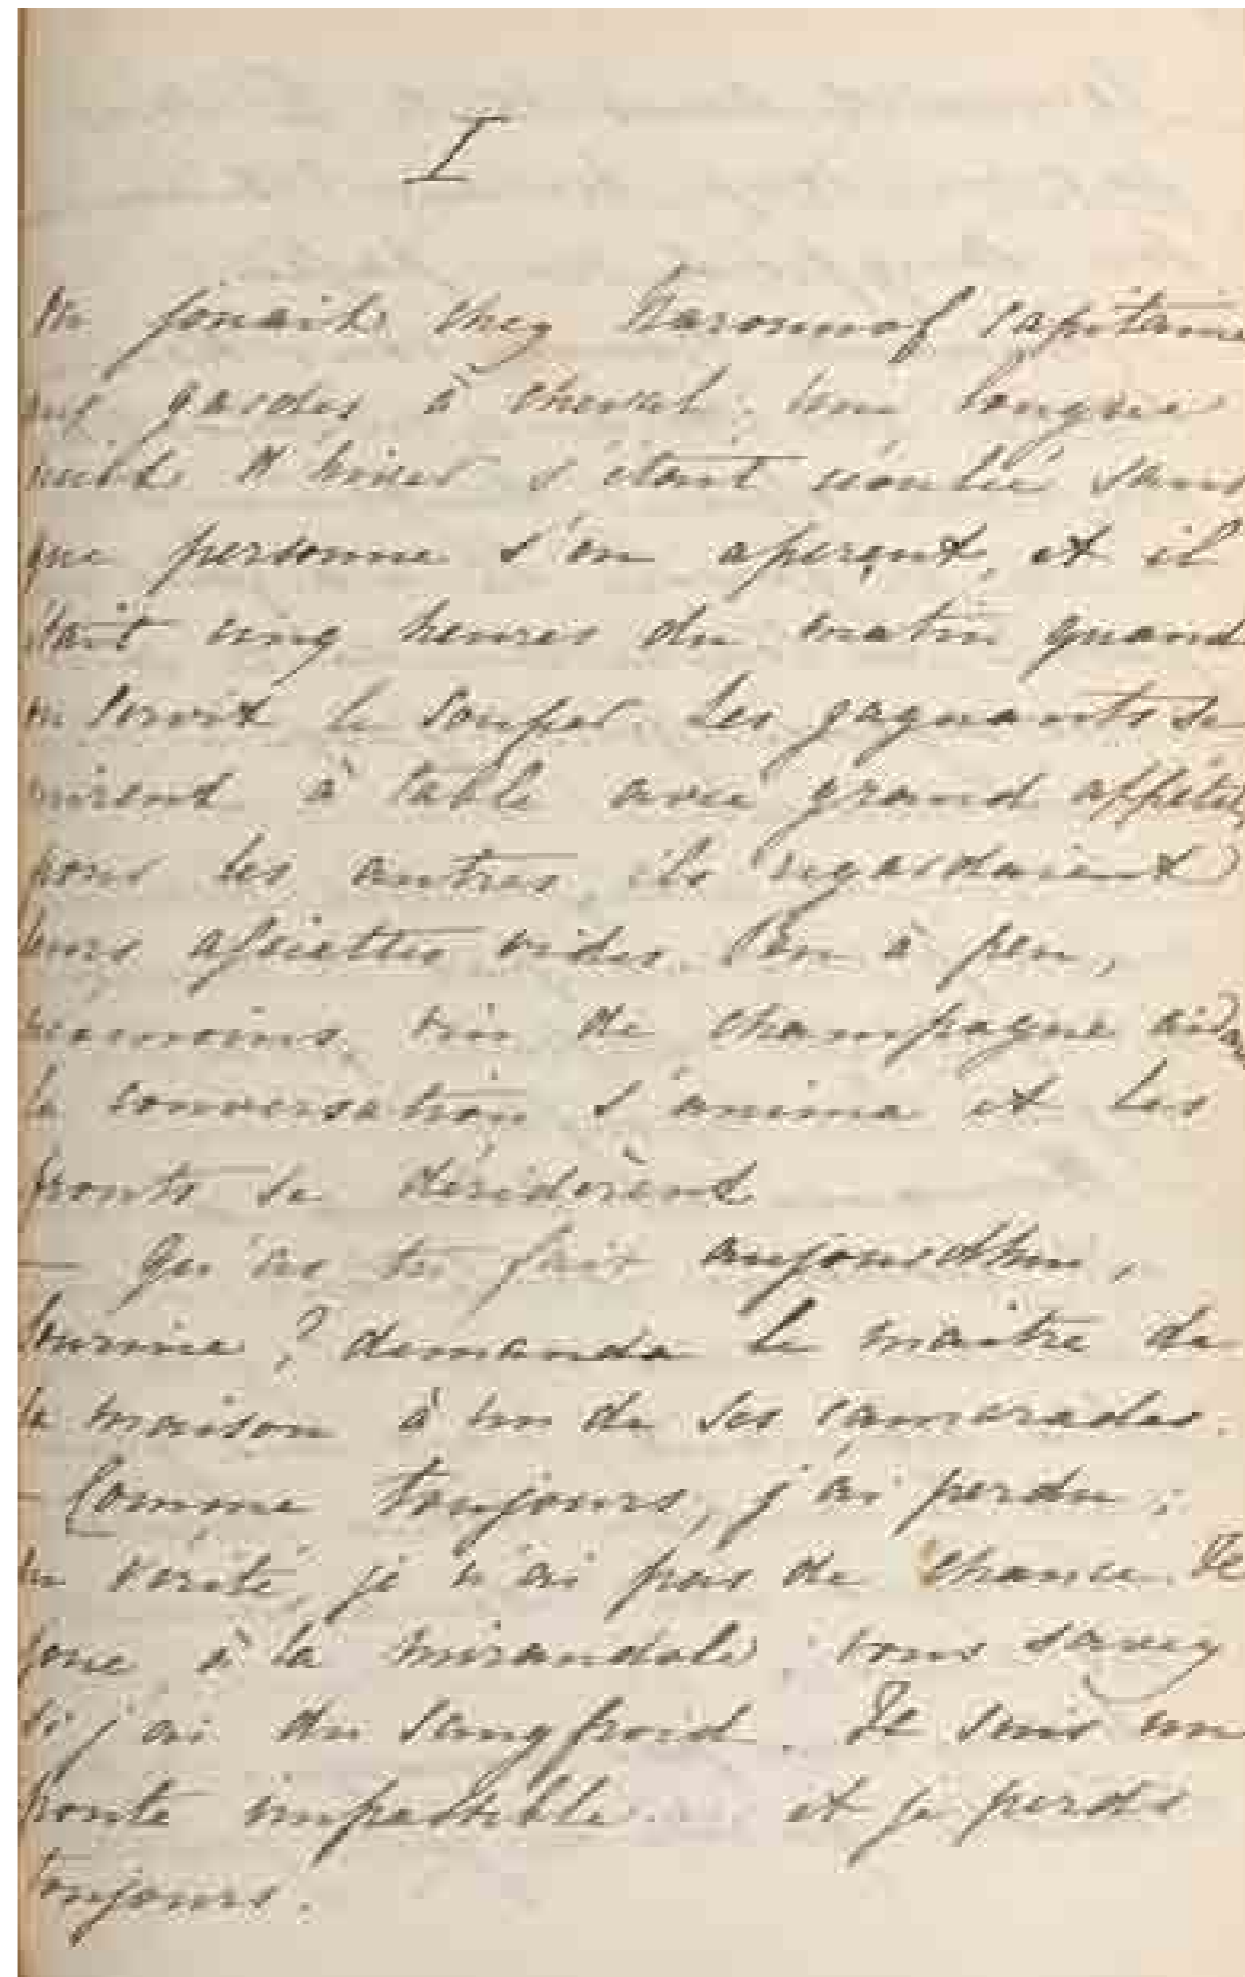 I
On jouait chez Naroumof capitaine
aux gardes à cheval. Une longue
nuit d'hiver s'était écoulée sans
que personne s'en aperçut, et il
était cinq heures du matin quand
on servit le souper. Les gagnants se
mirent à table avec grand appétit
pour les autres, ils regardaient
leurs assiettes vides. Peu à peu,
néanmoins, vin de champagne aidant
la conversation s'anima et les
fronts se déridèrent
— Qu'as tu fait aujourd'hui,
Sourine ? demanda le maître de
la maison à un de ses camarades.
— Comme toujours, j'ai perdu ;
En vérité, je n'ai pas de chance. Je
joue à la mirandole, vous savez
si j'ai du sang froid. Je suis un
ponte impassible et je perds
toujours.